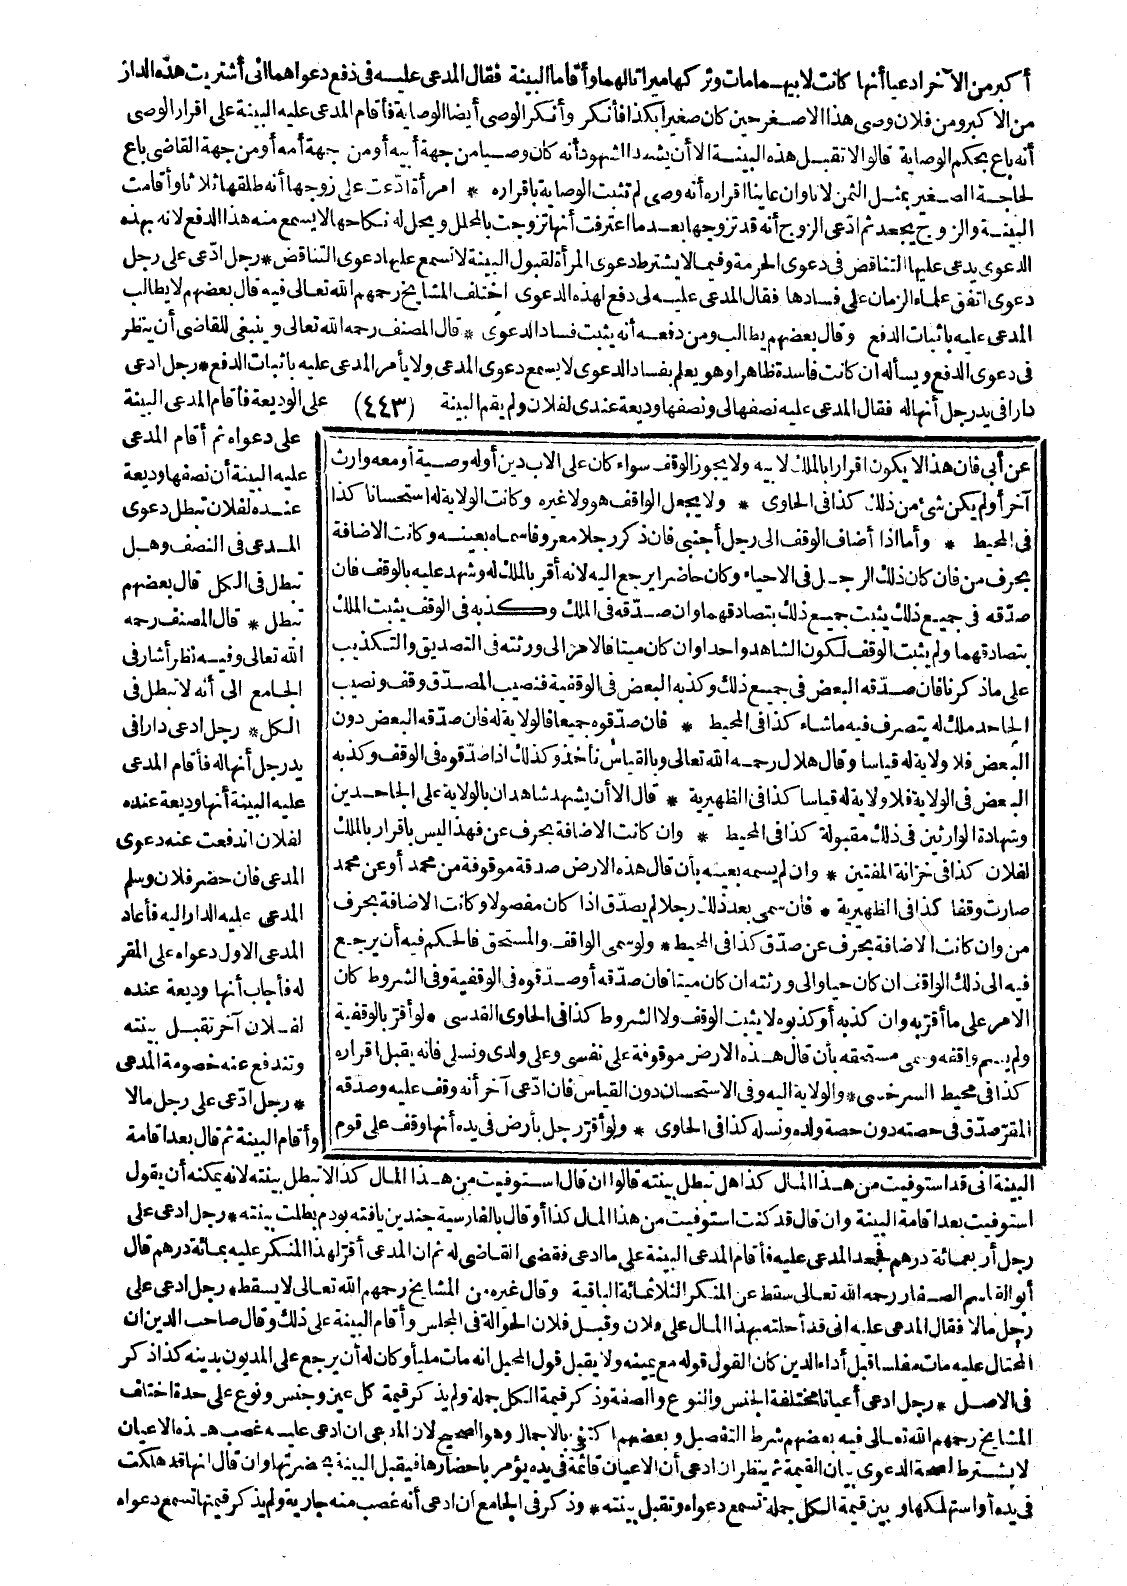 أكبر من الآخر ادعيا أنها كانت لابيهما مات وتركها ميراثا لهما وأقاما البينة فقال المدعى عليه فى دفع دعواهما انى اشتريت هذه الدار
من الاكبر ومن فلان وصى هذا الاصغر حين كان صغيرا بكذا فأنكر وأنكر الوصى أيضا الوصاية فأقام المدعى عليه البينة على اقرار الوصى
أنه باع بحكم الوصاية قالوا لا تقبل هذه البينة الا أن يشهد الشهود أنه كان وصيا من جهة أبيه أو من جهة أمه أو من جهة القاضى باع
لحاجة الصغير بمثل الثمن لانا وان عاينا اقراره أنه وصى لم تثبت الوصاية باقراره * امرأة ادّعت على زوجها أنه طلقها ثلاثا وأقامت
البينة والزوج يجحد ثم ادّعى الزوج أنه قد تزوجها بعدما اعترفت أنها تزوجت بالمحلل ويحل له نكاحها لا يسمع منه هذا الدفع لانه بهذه
الدعوى يدعى عليها التناقض فى دعوى الحرمة وفيما لا يشترط دعوى المرأة لقبول البينة لا تسمع عليها دعوى التناقض * رجل ادّعى على رجل
دعوى اتفق علماء الزمان على فسادها فقال المدعى عليه لى دفع لهذه الدعوى اختلف المشايخ رحمهم الله تعالى فيه قال بعضهم لا يطالب
المدعى عليه باثبات الدفع وقال بعضهم يطالب ومن دفعه أنه يثبت فساد الدعوى * قال المصنف رحمه الله تعالى وينبغى للقاضى أن ينظر
فى دعوى الدفع ويسأله ان كانت فاسدة ظاهرا وهو يعلم بفساد الدعوى لا يسمع دعوى المدعى ولا يأمر المدعى عليه باثبات الدفع * رجل ادعى
دارا فى يد رجل أنها له فقال المدعى عليه نصفها لى ونصفها وديعة عندى لفلان ولم يقم البينة (٤٤٣) على الوديعة فأقام المدعى البينة
على دعواه ثم أقام المدعى
عليه البينة أن نصفها وديعة
عنده لفلان تبطل دعوى
المدعى فى النصف وهل
تبطل فى الكل قال بعضهم
تبطل * قال المصنف رحمه
الله تعالى وفيه نظر أشار فى
الجامع الى أنه لا تبطل فى
الكل * رجل ادعى دارا فى
يد رجل أنها له فأقام المدعى
عليه البينة أنها وديعة عنده
لفلان اندفعت عنه دعوى
المدعى فان حضر فلان وسلم
المدعى عليه الدار اليه فأعاد
المدعى الاول دعواه على المقر
له فأجاب أنها وديعة عنده
لفلان آخر تقبل بينته
وتندفع عنه خصومة المدعى
* رجل ادّعى على رجل مالا
وأقام البينة ثم قال بعد اقامة
عن أبى فان هذا لا يكون اقرارا بالملك لابيه ولا يجوز الوقف سواء كان على الاب دين أوله وصية أو معه وارث
آخر أو لم يكن شئ من ذلك كذا فى الحاوى * ولا يجعل الواقف هو ولا غيره وكانت الولاية له استحسانا كذا
فى المحيط * وأما اذا أضاف الوقف الى رجل أجنبى فان ذكر رجلا معروفا سماه بعينه وكانت الاضافة
بحرف من فان كان ذلك الرجل فى الاحياء وكان حاضرا يرجع اليه لانه أقر بالملك له وشهد عليه بالوقف فان
صدّقه فى جميع ذلك يثبت جميع ذلك بتصادقهما وان صدّقه فى الملك وكذبه فى الوقف يثبت الملك
بتصادقهما ولم يثبت الوقف لكون الشاهد واحدا وان كان ميتا فالامر الى ورثته فى التصديق والتكذيب
على ما ذكرنا فان صدّقه البعض فى جميع ذلك وكذبه البعض فى الوقفية فنصيب المصدّق وقف ونصيب
الجاحد ملك له يتصرف فيه ما شاء كذا فى المحيط * فان صدّقوه جميعا فالولاية له فان صدّقه البعض دون
البعض فلا ولاية له قياسا وقال هلال رحمه الله تعالى وبالقياس نأخذ وكذلك اذا صدّقوه فى الوقف وكذبه
البعض فى الولاية فلا ولاية له قياسا كذا فى الظهيرية * قال الا أن يشهد شاهدان بالولاية على الجاحدين
وشهادة الوارثين فى ذلك مقبولة كذا فى المحيط * وان كانت الاضافة بحرف عن فهذا ليس باقرار بالملك
لفلان كذا فى خزانة المفتين * وان لم يسمه بعينه بأن قال هذه الارض صدقة موقوفة من محمد أو عن محمد
صارت وقفا كذا فى الظهيرية * فان سمى بعد ذلك رجلا لم يصدّق اذا كان مفصولا وكانت الاضافة بحرف
من وان كانت الاضافة بحرف عن صدّق كذا فى المحيط * ولو سمى الواقف والمستحق فالحكم فيه أن يرجع
فيه الى ذلك الواقف ان كان حيا والى ورثته ان كان ميتا فان صدّقه أو صدّقوه فى الوقفية وفى الشروط كان
الامر على ما أقرّ به وان كذبه أو كذبوه لا يثبت الوقف ولا الشروط كذا فى الحاوى القدسى * لو أقرّ بالوقفية
ولم يسم واقفه وسمى مستحقه بأن قال هذه الارض موقوفة على نفسى وعلى ولدى ونسلى فانه يقبل اقراره
كذا فى محيط السرخسى * والولاية اليه وفى الاستحسان دون القياس فان ادّعى آخر أنه وقف عليه وصدّقه
المقرّ صدّق فى حصته دون حصة ولده ونسله كذا فى الحاوى * ولو أقرّ رجل بأرض فى يده أنها وقف على قوم
البينة انى قد استوفيت من هذا المال كذا هل تبطل بينته قالوا ان قال استوفيت من هذا المال كذا لا تبطل بينته لانه يمكنه أن يقول
استوفيت بعد اقامة البينة وان قال قد كنت استوفيت من هذا المال كذا أو قال بالفارسية جندين يافته بودم بطلت بينته * رجل ادعى على
رجل أربعمائة درهم فجحد المدعى عليه فأقام المدعى البينة على ما ادعى فقضى القاضى له ثم ان المدعى أقرّ لهذا المنكر عليه بمائة درهم قال
أبو القاسم الصفار رحمه الله تعالى سقط عن المنكر الثلاثمائة الباقية وقال غيره من المشايخ رحمهم الله تعالى لا يسقط * رجل ادعى على
رجل مالا فقال المدعى عليه انى قد أحلته بهذا المال على فلان وقبل فلان الحوالة فى المجلس وأقام البينة على ذلك وقال صاحب الدين ان
المحتال عليه مات مفلسا قبل أداء الدين كان القول قوله مع يمينه ولا يقبل قول المحيل انه مات مليأ وكان له أن يرجع على المديون بدينه كذا ذكر
فى الاصل * رجل ادعى أعيانا مختلفة الجنس والنوع والصفة وذكر قيمة الكل جملة ولم يذكر قيمة كل عين وجنس ونوع على حدة اختلف
المشايخ رحمهم الله تعالى فيه بعضهم شرط التفصيل وبعضهم اكتفى بالاجمال وهو الصحيح لان المدعى ان ادعى عليه غصب هذه الاعيان
لا يشترط لصحة الدعوى بيان القيمة ثم ينظر ان ادعى أن الاعيان قائمة فى يده يؤمر باحضارها فيقبل البينة بحضرتها وان قال انها قد هلكت
فى يده أو استهلكها وبين قيمة الكل جملة تسمع دعواه وتقبل بينته * وذكر فى الجامع ان ادعى أنه غصب منه جارية ولم يذكر قيمتها تسمع دعواه